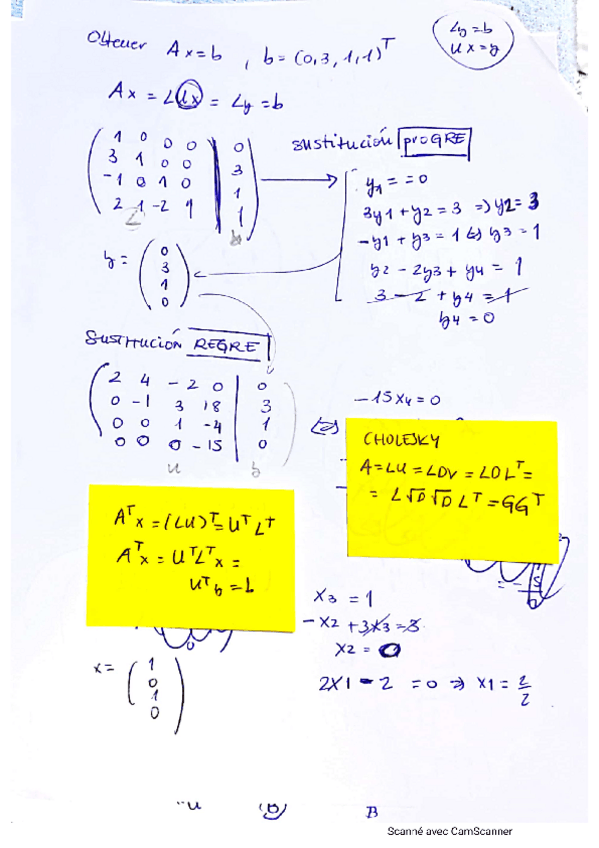 Obtener Ax=b , b=(0,3,1,1)ᵀ
Ly=b
Ux=y
Ax = LUx = Ly =b
1 0 0 0 | 0
3 1 0 0 | 3
-1 0 1 0 | 1
2 1 -2 1 | 1
L b
sustitución PROGRE
y1 = =0
3y1+y2=3 => y2=3
-y1+y3=1 <=> y3=1
y2-2y3+y4=1
3-2+y4=1
y4=0
y= (0
3
1
0)
Sustitución REGRE
2 4 -2 0 | 0
0 -1 3 18 | 3
0 0 1 -4 | 1
0 0 0 -15 | 0
U b
-15x4=0
CHOLESKY
A=LU=LDV=LDLᵀ=
= L√D√D Lᵀ=GGᵀ
Aᵀx=(LU)ᵀ=UᵀLᵀ
Aᵀx=UᵀLᵀx=
Uᵀb=L
x3 =1
-x2+3x3=3
x2=0
2x1-2 =0 => x1=2/2
x= (1
0
1
0)
Scanné avec CamScanner